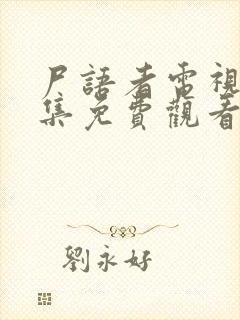 尸語者電視
集免費觀看
劉永好